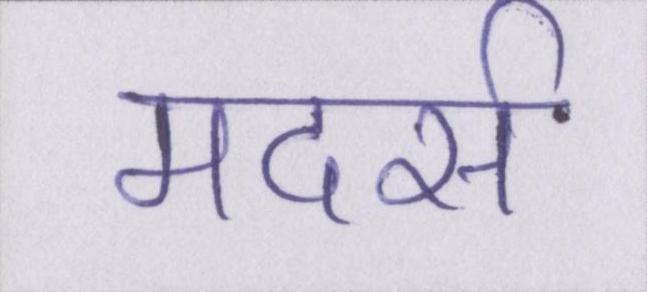 मदर्स